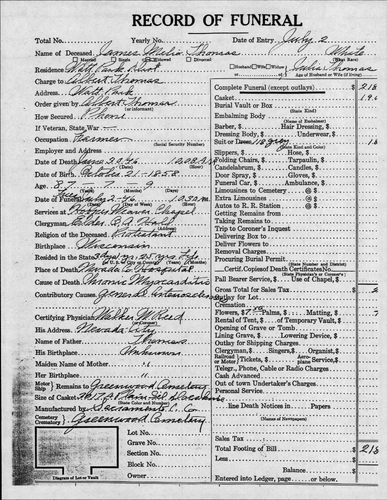 RECORD OF FUNERAL
Total No. Date of Entry July 2
Name of Deceased James Thomas White
Married Single Widowed Divorced (What Race)
Residence Watt Park Husband Wife Widow Julia Thomas
Charge to Albert Thomas Age of Husband or Wife (if living)
Address Watt Park
Order given by Albert Thomas
(or informant)
How Secured Phone
If Veteran, State War
Occupation Farmer
(Social Security Number)
Employer and Address
Date of Death June 30-46
Date of Birth October 21-1858
Age 87 7 9
Date of Funeral July 2-46 10:30 AM
Services at Weaver Chapel
Clergyman Elder
Religion of the Deceased Protestant
Birthplace Wisconsin
Resided in the State
Place of Death Nevada Co Hospital
Cause of Death Chronic Myocarditis
Contributory Causes
Certifying Physician Walter W Reed
His Address Nevada City
Name of Father Thomas
His Birthplace Unknown
Maiden Name of Mother "
Her Birthplace "
Motor Ship Remains to Greenwood Cemetery
Size of Casket
(State Color and Number)
Manufactured by Sacramento C. Co
Cemetery Crematory Greenwood Cemetery
Lot No.
Grave No.
Section No.
Block No.
Owner
Diagram of Lot or Vault
Complete Funeral (except outlays) $ 218
Casket 196
Burial Vault or Box
(State Kind)
Embalming Body
(State Number)
Barber, $ Hair Dressing, $
Dressing Body, $ Underwear, $
Suit or Dress 118 grey 18
(State Kind and Color)
Slippers, $ Hose, $
Folding Chairs, $ Tarpaulin, $
Candelabrum, $ Candles, $
Door Spray, $ Gloves, $
Funeral Car, $ Ambulance, $
Limousines to Cemetery @ $
Extra Limousines @ $
Autos to R. R. Station @ $
Getting Remains from
Taking Remains to
Trip to Coroner's Inquest
Delivering Box to
Deliver Flowers to
Removal Charges
Procuring Burial Permit
(State Number and District)
Certif. Copies of Death Certificates No.
(State Physician's or Coroner's)
Pall Bearer Service, $ Use of Chapel, $
Gross Total for Sales Tax $
Outlay for Lot
Cremation
Flowers, $ Palms, $ Matting, $
Rental of Tent, $ of Temporary Vault, $
Opening of Grave or Tomb
Lining Grave, $ Lowering Device, $
Outlay for Shipping Charges
Clergyman, $ Singers, $ Organist, $
Railroad Tickets, $ Aeroplane Service, $
Telegr., Phone, Cable or Radio Charges
Cash Advanced
Out of town Undertaker's Charges
Personal Service
line Death Notices in Papers
(Names of Newspapers)
Sales Tax $
Total Footing of Bill $ 218
Less
Balance $
Entered into Ledger, page or below.